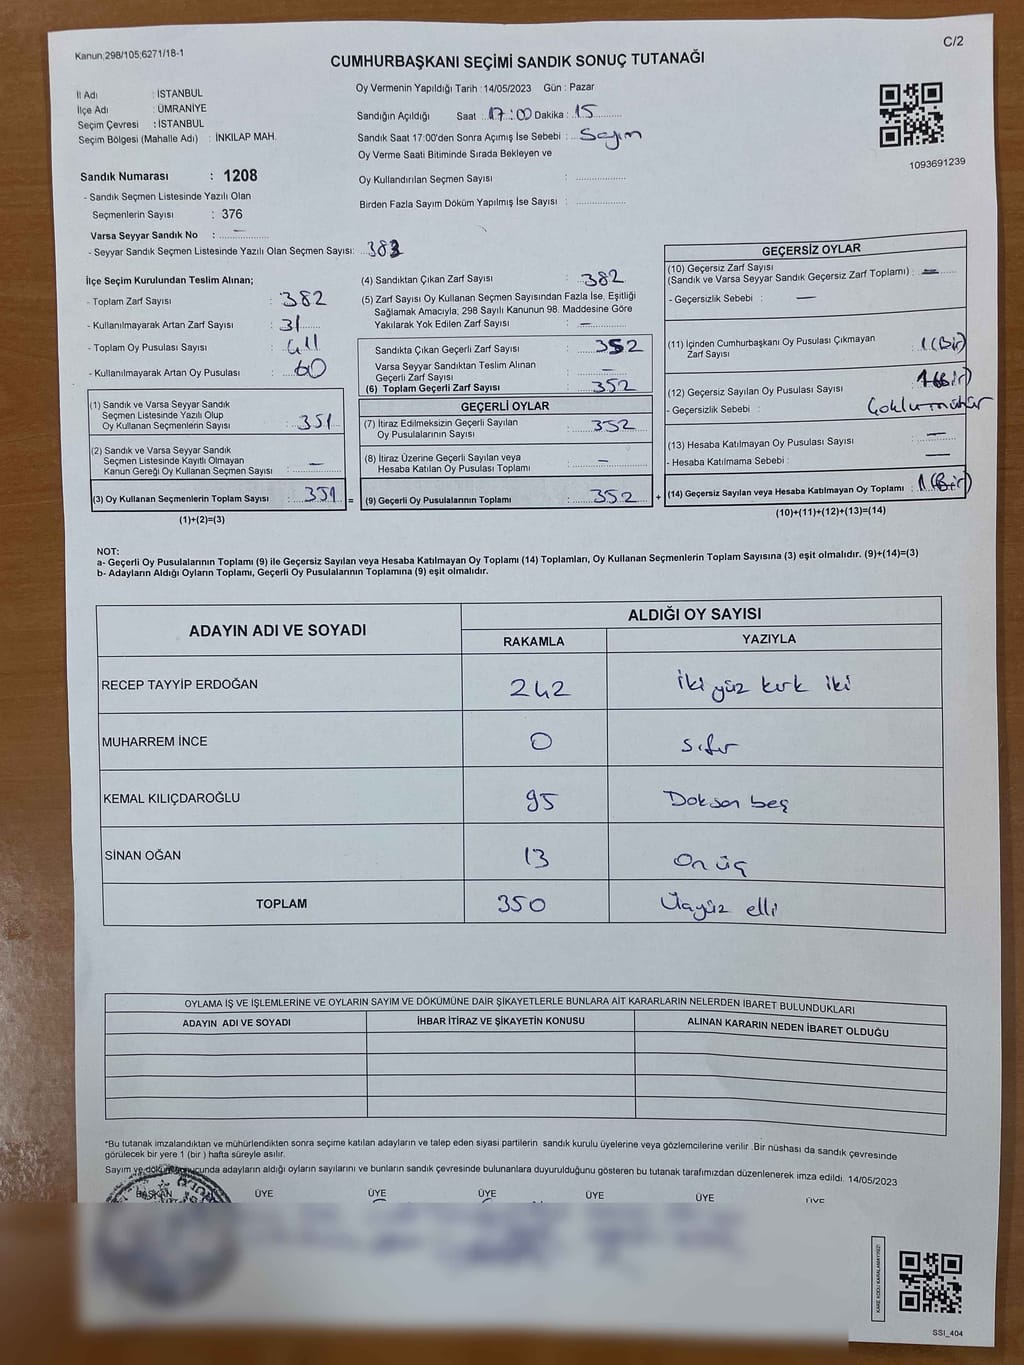 Kanun;298/105;6271/18-1
C/2
CUMHURBAŞKANI SEÇİMİ SANDIK SONUÇ TUTANAĞI
İl Adı : İSTANBUL
İlçe Adı : ÜMRANİYE
Seçim Çevresi : İSTANBUL
Seçim Bölgesi (Mahalle Adı) : İNKILAP MAH.
Oy Vermenin Yapıldığı Tarih : 14/05/2023 Gün : Pazar
Sandığın Açıldığı Saat : 17:00 Dakika : 15
Sandık Saat 17:00'den Sonra Açımış İse Sebebi : Sayım
Oy Verme Saati Bitiminde Sırada Bekleyen ve
Oy Kullandırılan Seçmen Sayısı :
Birden Fazla Sayım Döküm Yapılmış İse Sayısı :
1093691239
Sandık Numarası : 1208
- Sandık Seçmen Listesinde Yazılı Olan
Seçmenlerin Sayısı : 376
Varsa Seyyar Sandık No : —
- Seyyar Sandık Seçmen Listesinde Yazılı Olan Seçmen Sayısı:
İlçe Seçim Kurulundan Teslim Alınan;
- Toplam Zarf Sayısı : 382
- Kullanılmayarak Artan Zarf Sayısı : 31
- Toplam Oy Pusulası Sayısı : 411
- Kullanılmayarak Artan Oy Pusulası : 60
(1) Sandık ve Varsa Seyyar Sandık
Seçmen Listesinde Yazılı Olup
Oy Kullanan Seçmenlerin Sayısı : 351
(2) Sandık ve Varsa Seyyar Sandık
Seçmen Listesinde Kayıtlı Olmayan
Kanun Gereği Oy Kullanan Seçmen Sayısı : —
(3) Oy Kullanan Seçmenlerin Toplam Sayısı : 351 =
(1)+(2)=(3)
(4) Sandıktan Çıkan Zarf Sayısı : 382
(5) Zarf Sayısı Oy Kullanan Seçmen Sayısından Fazla İse, Eşitliği
Sağlamak Amacıyla; 298 Sayılı Kanunun 98. Maddesine Göre
Yakılarak Yok Edilen Zarf Sayısı : —
Sandıkta Çıkan Geçerli Zarf Sayısı : 352
Varsa Seyyar Sandıktan Teslim Alınan
Geçerli Zarf Sayısı : —
(6) Toplam Geçerli Zarf Sayısı : 352
GEÇERLİ OYLAR
(7) İtiraz Edilmeksizin Geçerli Sayılan
Oy Pusulalarının Sayısı : 352
(8) İtiraz Üzerine Geçerli Sayılan veya
Hesaba Katılan Oy Pusulası Toplamı : —
(9) Geçerli Oy Pusulalarının Toplamı : 352 +
GEÇERSİZ OYLAR
(10) Geçersiz Zarf Sayısı
(Sandık ve Varsa Seyyar Sandık Geçersiz Zarf Toplamı) : —
- Geçersizlik Sebebi : —
(11) İçinden Cumhurbaşkanı Oy Pusulası Çıkmayan
Zarf Sayısı : 1 (Bir)
(12) Geçersiz Sayılan Oy Pusulası Sayısı : 1 (Bir)
- Geçersizlik Sebebi : Çoklu mühür
(13) Hesaba Katılmayan Oy Pusulası Sayısı : —
- Hesaba Katılmama Sebebi : —
(14) Geçersiz Sayılan veya Hesaba Katılmayan Oy Toplamı : 1 (Bir)
(10)+(11)+(12)+(13)=(14)
NOT:
a- Geçerli Oy Pusulalarının Toplamı (9) ile Geçersiz Sayılan veya Hesaba Katılmayan Oy Toplamı (14) Toplamları, Oy Kullanan Seçmenlerin Toplam Sayısına (3) eşit olmalıdır. (9)+(14)=(3)
b- Adayların Aldığı Oyların Toplamı, Geçerli Oy Pusulalarının Toplamına (9) eşit olmalıdır.
ADAYIN ADI VE SOYADI
ALDIĞI OY SAYISI
RAKAMLA YAZIYLA
RECEP TAYYİP ERDOĞAN 242 İki yüz kırk iki
MUHARREM İNCE 0 sıfır
KEMAL KILIÇDAROĞLU 95 Doksan beş
SİNAN OĞAN 13 On üç
TOPLAM 350 Üçyüz elli
OYLAMA İŞ VE İŞLEMLERİNE VE OYLARIN SAYIM VE DÖKÜMÜNE DAİR ŞİKAYETLERLE BUNLARA AİT KARARLARIN NELERDEN İBARET BULUNDUKLARI
ADAYIN ADI VE SOYADI İHBAR İTİRAZ VE ŞİKAYETİN KONUSU ALINAN KARARIN NEDEN İBARET OLDUĞU
*Bu tutanak imzalandıktan ve mühürlendikten sonra seçime katılan adayların ve talep eden siyasi partilerin sandık kurulu üyelerine veya gözlemcilerine verilir .Bir nüshası da sandık çevresinde
görülecek bir yere 1 (bir ) hafta süreyle asılır.
Sayım ve döküm sonucunda adayların aldığı oyların sayılarını ve bunların sandık çevresinde bulunanlara duyurulduğunu gösteren bu tutanak tarafımızdan düzenlenerek imza edildi. 14/05/2023
BAŞKAN ÜYE ÜYE ÜYE ÜYE ÜYE ÜYE
KARE KODU KARALAMAYINIZ!
SSI_404